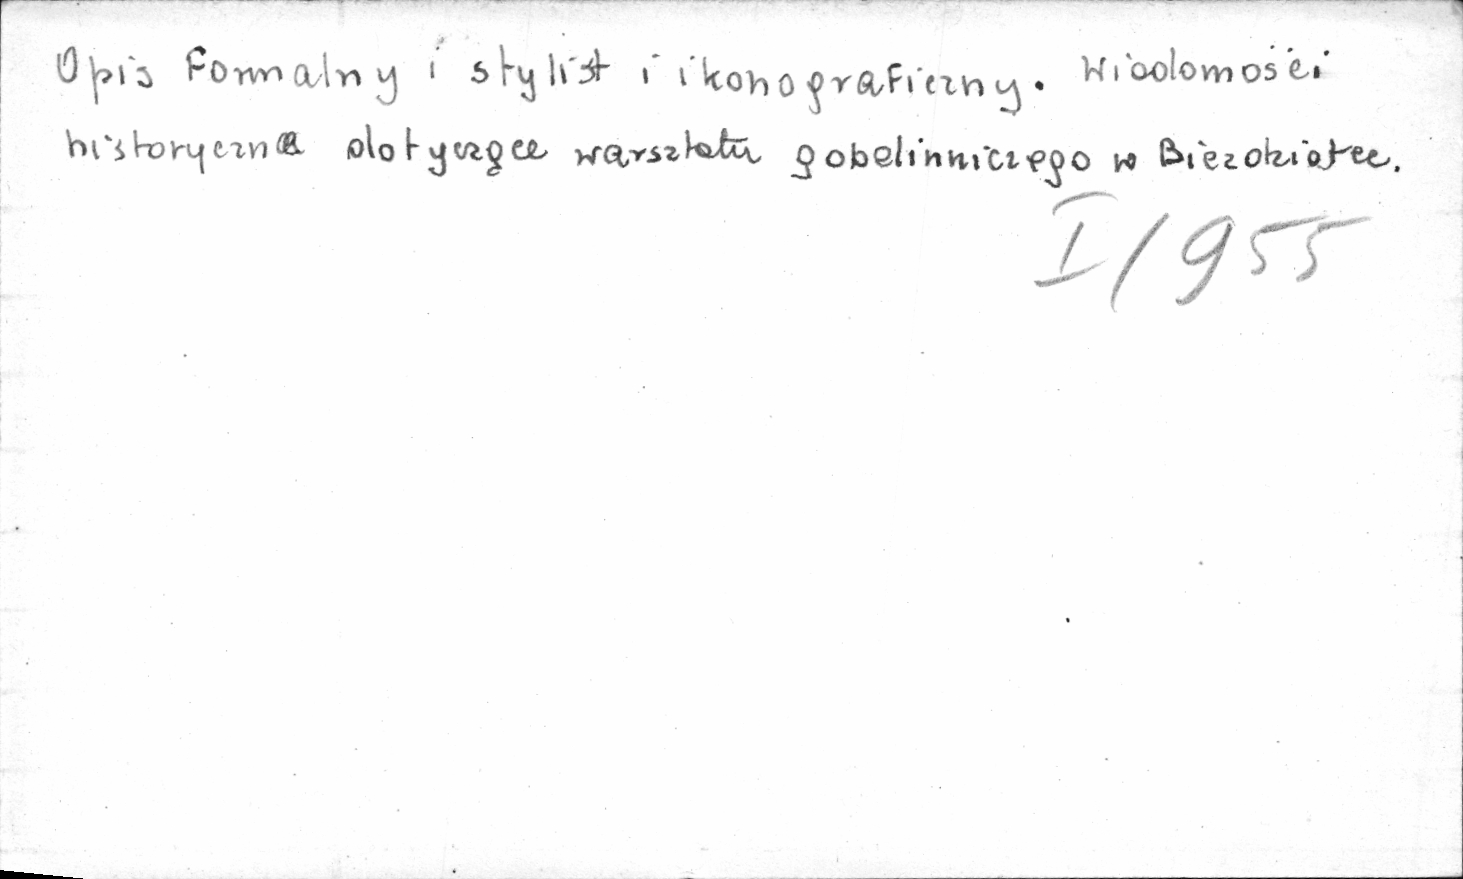 Opis formalny i stylist i ikonograficzny. Wiadomości
historyczne dotyczące warsztatu gobelinniczego w Bieździatce.
I/955